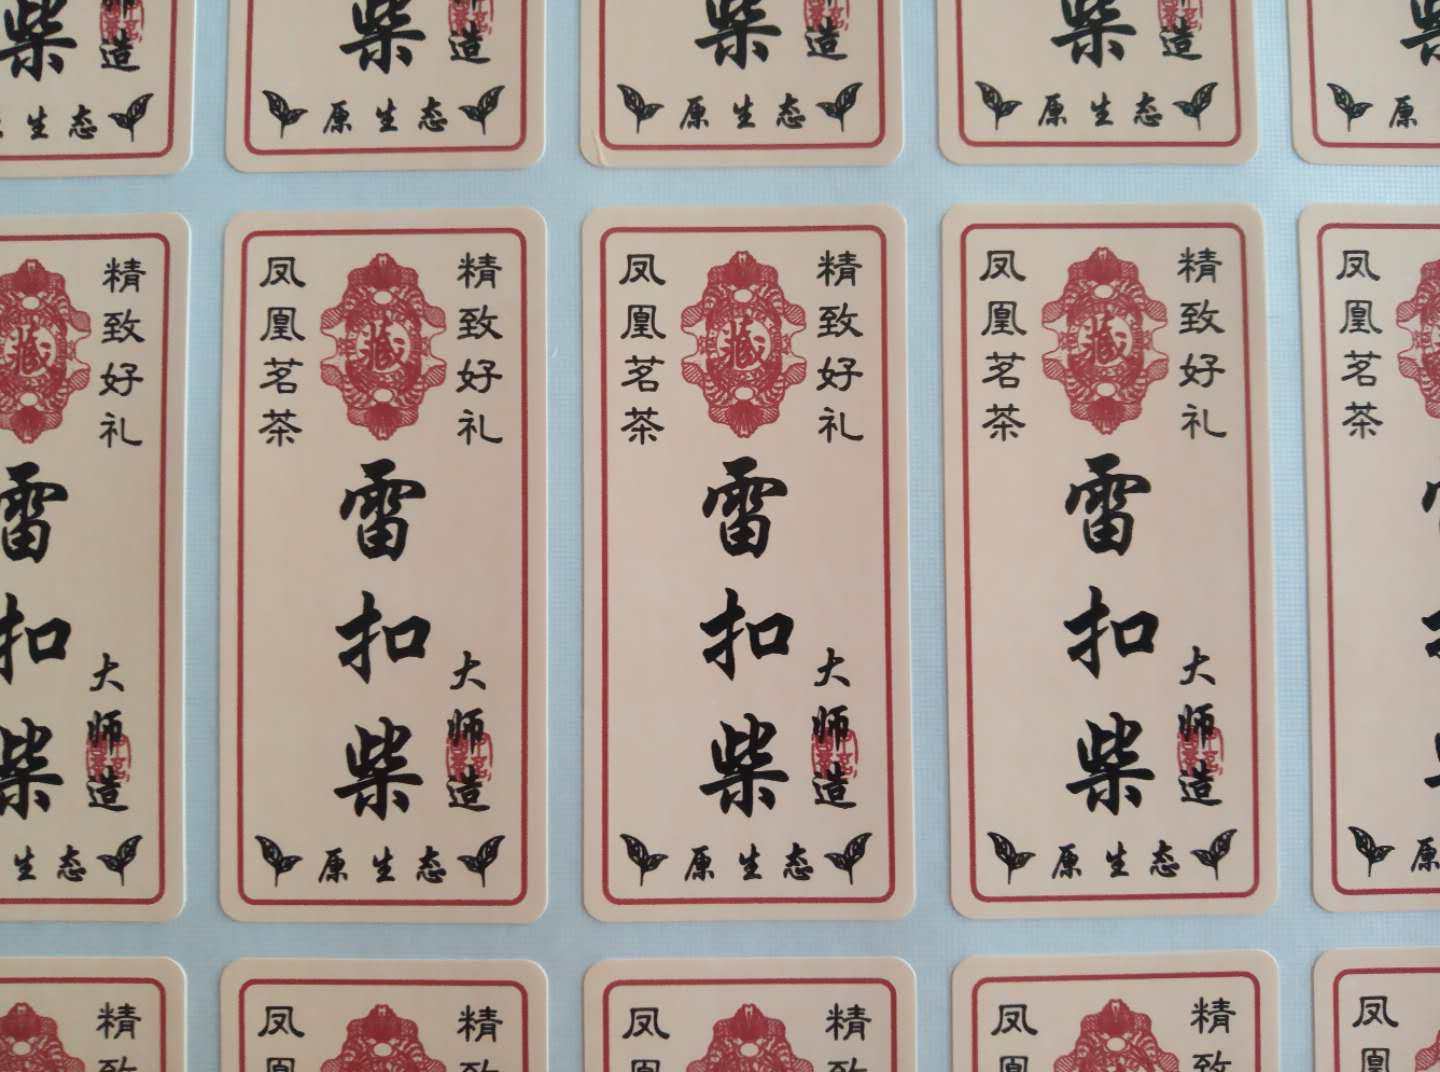 柴 造
原生态
柴 造
原生态
柴 造
原生态
柴 造
原生态
柴
原
精致好礼
藏
雷扣柴
大师造
生态
凤凰茗茶
精致好礼
藏
雷扣柴
大师造
原生态
凤凰茗茶
精致好礼
藏
雷扣柴
大师造
原生态
凤凰茗茶
精致好礼
藏
雷扣柴
大师造
原生态
凤凰茗茶
原
精致
凤凰
精致
凤凰
精致
凤凰
精致
凤凰